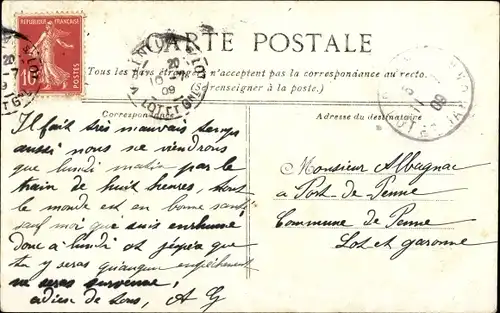 RÉPUBLIQUE FRANÇAISE
10
POSTES
CARTE POSTALE
Tous les pays étrangers n'acceptent pas la correspondance au recto.
(renseigner à la poste.)
Correspondance
Adresse du destinataire
LOT ET G
20
7
09
LOT ET G
Il fait très mauvais temps
aussi nous ne viendrons
que lundi matin par le
train de huit heures, tout
le monde est en bonne santé
sauf moi que suis enrhumé
donc à lundi et j'espère que
tu y seras quanqun empêchement
ne seras survenue,
adieu de tous, A G
Monsieur Albagnac
a Port-de Penne
Commune de Penne
Lot et garonne